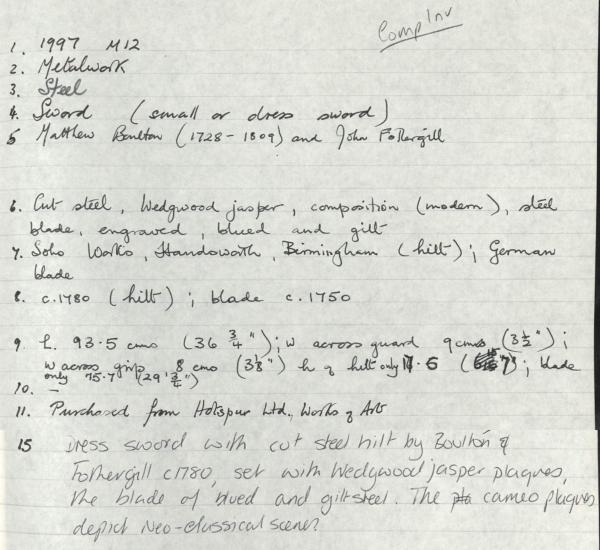 Comp Inv
1. 1997 M12
2. Metalwork
3. Steel
4. Sword (small or dress sword)
5 Matthew Boulton (1728-1809) and John Fothergill
6. Cut steel, Wedgwood jasper, composition (modern), steel
blade, engraved, blued and gilt
7. Soho Works, Handsworth, Birmingham (hilt); German
blade
8. c.1780 (hilt); blade c.1750
9. L. 93.5 cms (36 3/4"); w across guard 9cms (3 1/2");
w across grip 8 cms (3 1/8") h of hilt only 17.5 (7"); blade
only 75.7 (29 3/4")
10. —
11. Purchased from Hotspur Ltd., Works of Art
15 Dress sword with cut steel hilt by Boulton &
Fothergill c1780, set with Wedgwood jasper plaques,
the blade of blued and gilt steel. The cameo plaques
depict Neo-classical scenes.